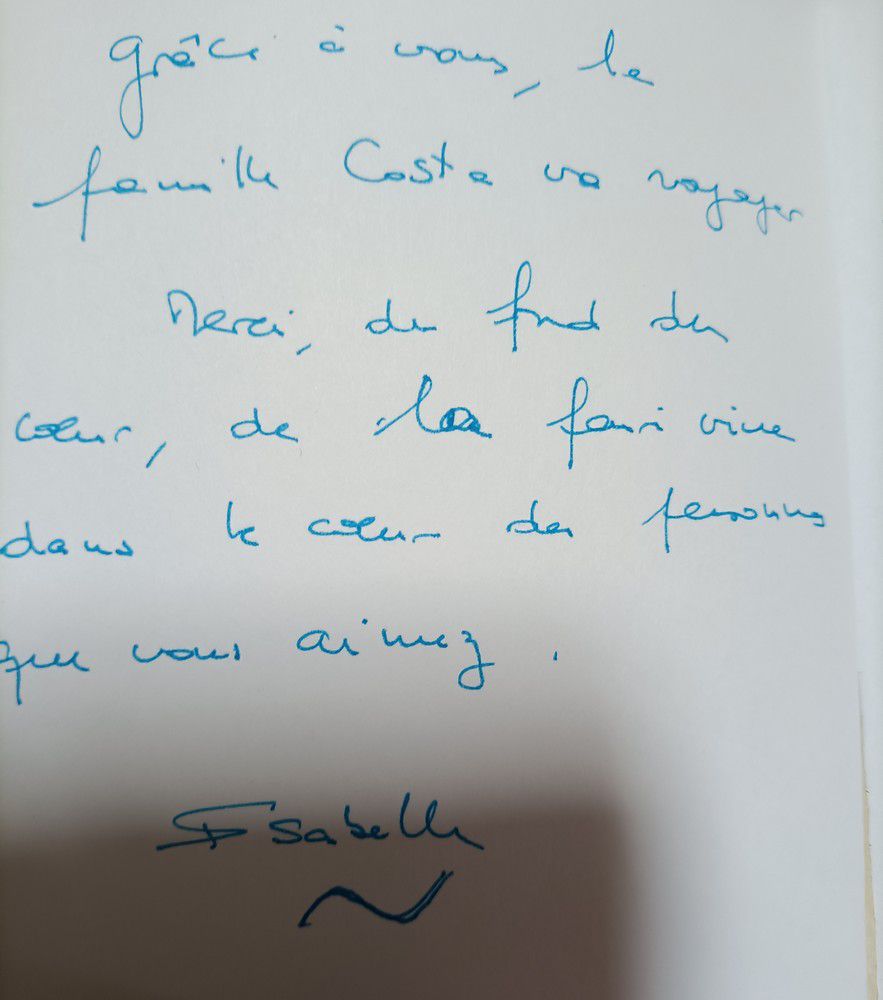 Grâce à vous, la
famille Costa va voyager
Merci, du fond du
cœur, de la faire vivre
dans le cœur des personnes
que vous aimez.
Isabelle